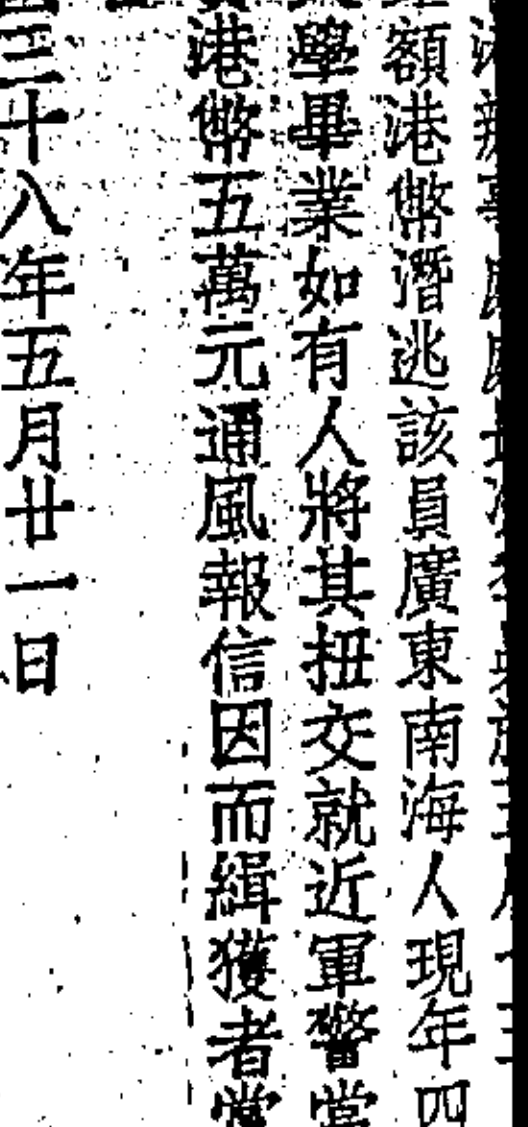 額港幣潛逃該員廣東南海人現年四
學畢業如有人將其扭交就近軍警當
港幣五萬元通風報信因而緝獲者當
三十八年五月廿一日